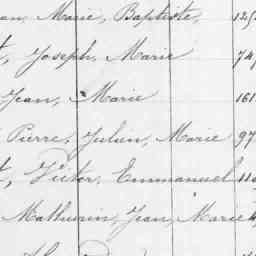 Marie, Baptiste,
Joseph, Marie
Jean, Marie 161
Pierre, Julien, Marie 97
Victor, Emmanuel
Mathurin, Jean, Marie